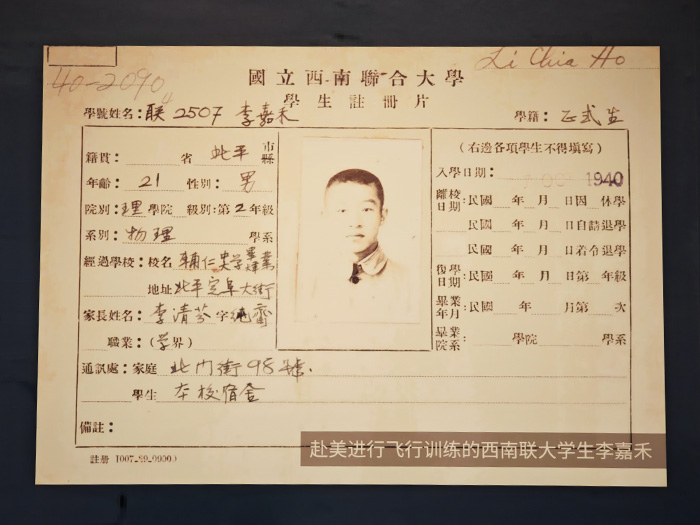 Li Chia Ho
40-2090
國立西南聯合大學
學生註冊片
學號姓名：联 2507 李嘉禾
學籍：正式生
籍貫：省 北平 市縣
年齡：21 性別：男
院別：理學院 級別：第2年級
系別：物理 學系
經過學校：校名 輔仁大學
地址 北平定阜大街
家長姓名：李清芬 字
職業：（學界）
通訊處：家庭 北门街98號.
學生 本校宿舍
備註：
註册 1007-29-9900)
（右邊各項學生不得填寫）
入學日期：1940
離校日期：民國 年 月 日因 休學
民國 年 月 日自請退學
民國 年 月 日若令退學
復學日期：民國 年 月 日第 年級
畢業年月：民國 年 月第 次
畢業院系：學院 學系
赴美进行飞行训练的西南联大学生李嘉禾